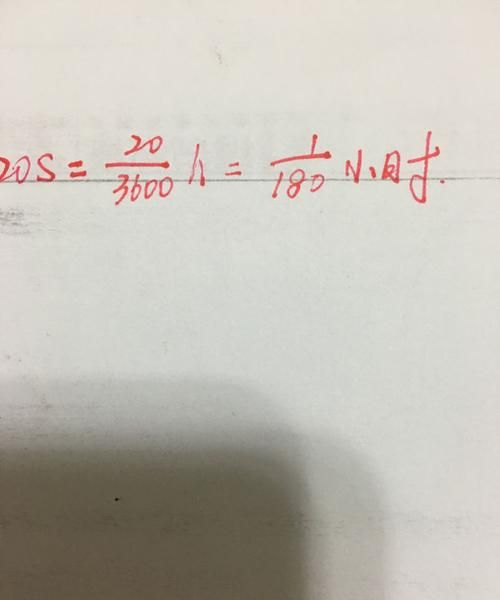 20S = 20/3600 h = 1/180 小时.